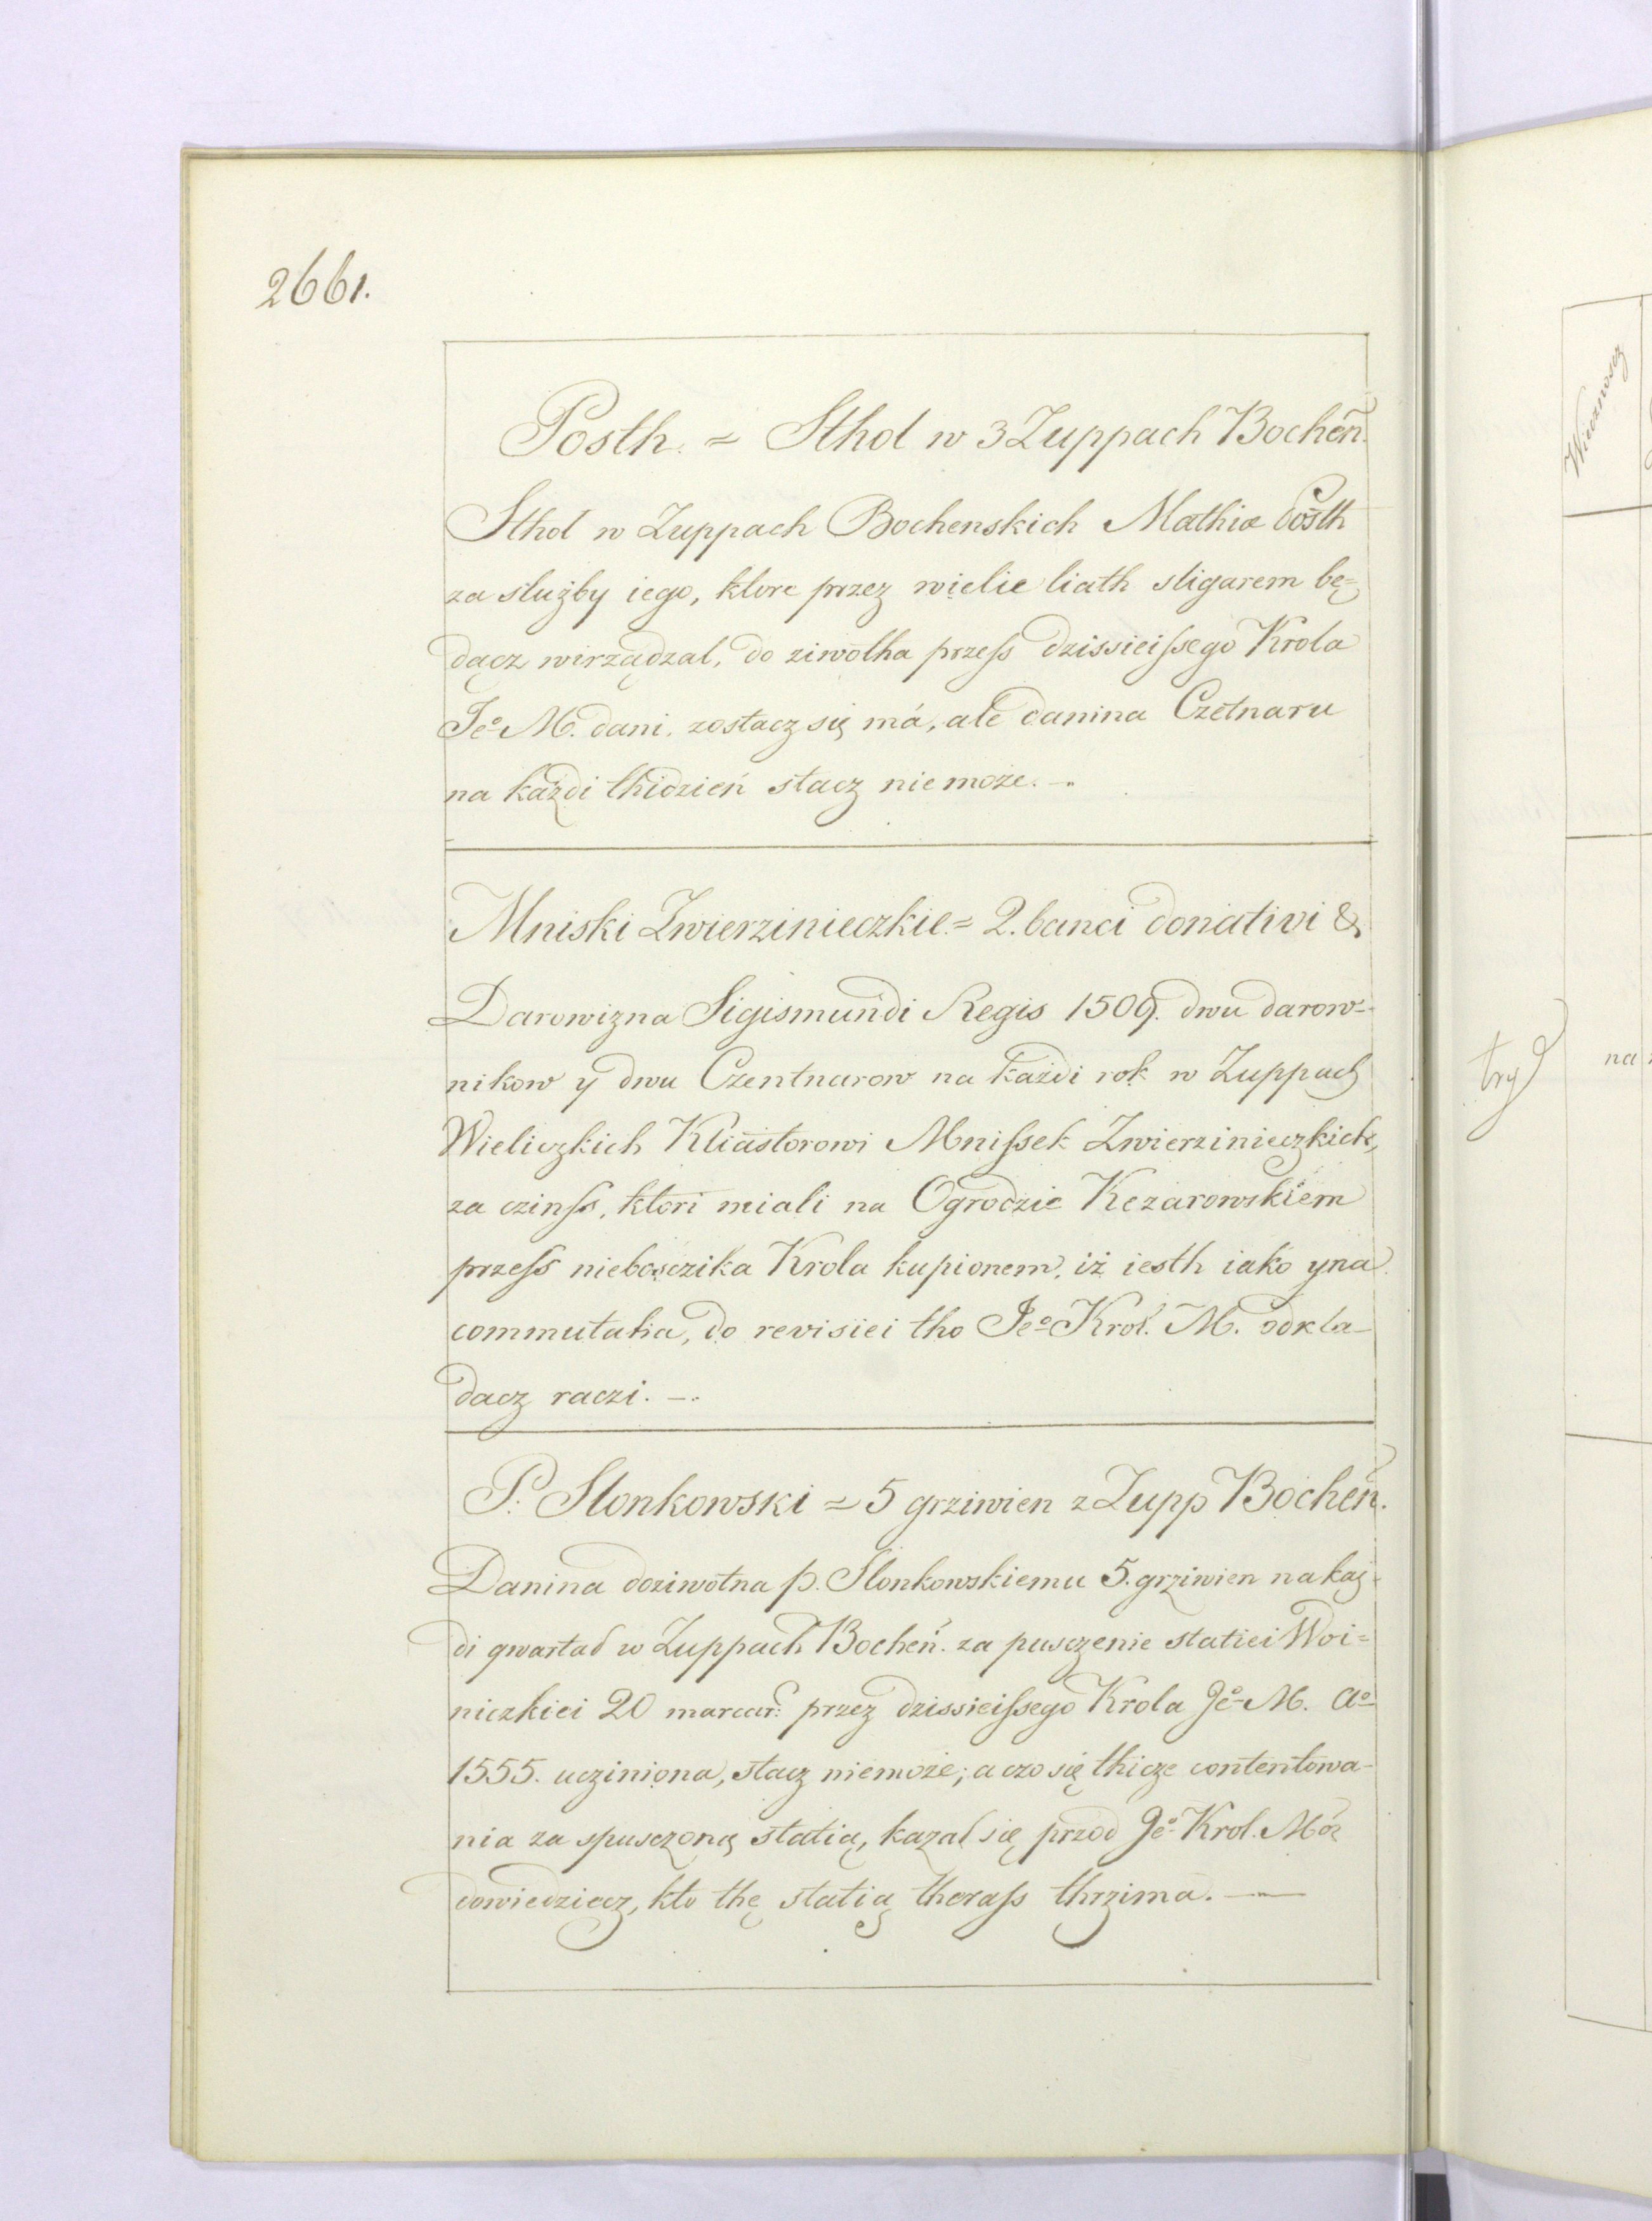 2661.
Posth. = Sthol w 3 Zuppach Bocheń.
Sthol w Zuppach Bochenskich Mathiæ Posth
za służby iego, ktore przez wielie liath sligarem bę=
dącz wirządzal, do ziwotha przeſs dzissieiſsego Krola
Jeº M. dani, zostacz się má, ale danina Czetnaru
na każdi thidzień stacz niemoże. —.
Mniski Zwierzinieczkie. = 2. banci donativi &
Darowizna Sigismundi Regis 1509. dwu darow-
nikow y dwu Czentnarow na każdi rok w Zuppach
Wieliczkich Kliastorowi Mniſsek Zwierzinieczkich,
za czinſs, ktori miali na Ogrodzie Kezarowskiem
przeſs nieboszczika Krola kupionem, iż iesth iako yna
commutatia, do revisiei tho Jeº Krol. M. odkla-
dacz raczi. —.
P. Slonkowski = 5 grziwien z Zupp Bocheń.
Danina doziwotna p. Slonkowskiemu 5. grziwien na kaz-
di qwartał w Zuppach Bocheń. za pusczenie statiei Woi=
niczkiei 20 marcar: przez dzissieiſsego Krola Jeº M. Aº
1555. ucziniona, stacz niemoże; a czo się thicze contentowa-
nia za spusczoną statią, kazał się przód Jeº Krol. Mó
dowiedziecz, kto thę statią theraſs thrzima. —
Wiecznoscz
try
na